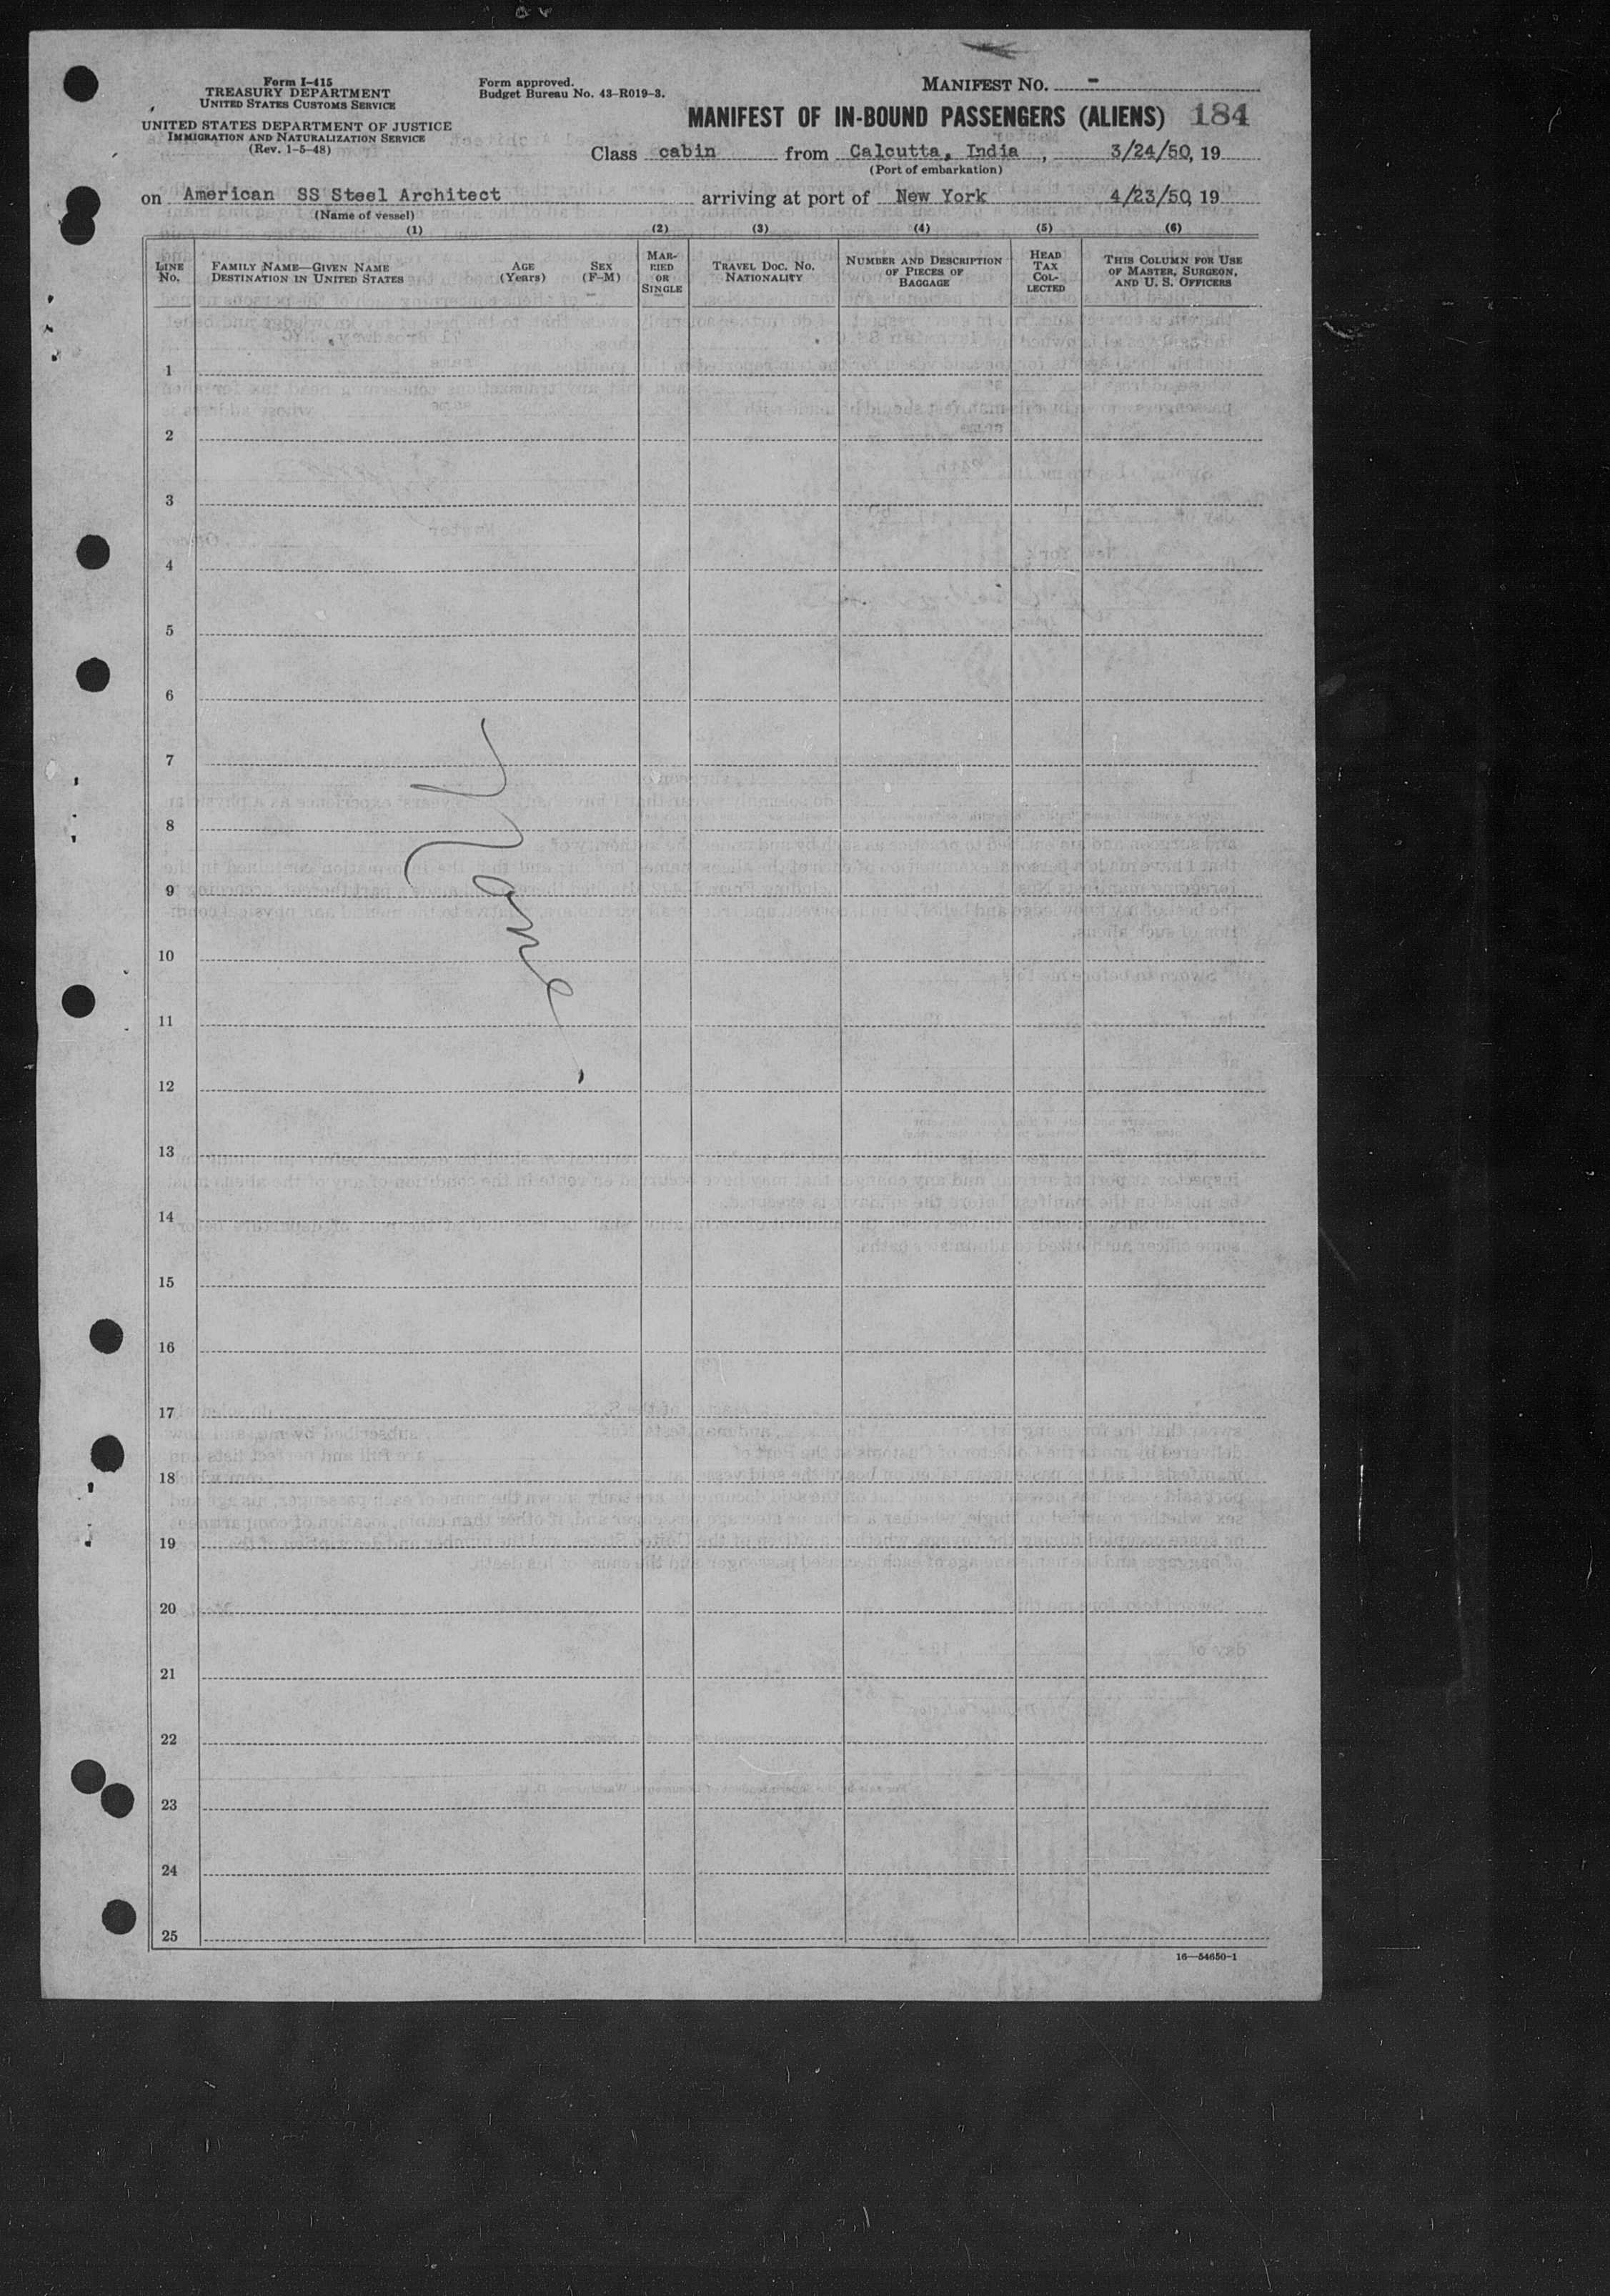 Form I-415
TREASURY DEPARTMENT
UNITED STATES CUSTOMS SERVICE
UNITED STATES DEPARTMENT OF JUSTICE
IMMIGRATION AND NATURALIZATION SERVICE
(Rev. 1-5-48)
Form approved.
Budget Bureau No. 43-R019-3.
MANIFEST NO. -
MANIFEST OF IN-BOUND PASSENGERS (ALIENS) 184
Class cabin from Calcutta, India, 3/24/50, 19
(Port of embarkation)
on American SS Steel Architect arriving at port of New York 4/23/50, 19
(Name of vessel)
(1) (2) (3) (4) (5) (6)
LINE No.
FAMILY NAME—GIVEN NAME
DESTINATION IN UNITED STATES
AGE (Years)
SEX (F-M)
MAR-RIED OR SINGLE
TRAVEL DOC. NO.
NATIONALITY
NUMBER AND DESCRIPTION OF PIECES OF BAGGAGE
HEAD TAX COL-LECTED
THIS COLUMN FOR USE OF MASTER, SURGEON, AND U. S. OFFICERS
1
2
3
4
5
6
7
8
9
10
11
12
13
14
15
16
17
18
19
20
21
22
23
24
25
None
16—54650-1